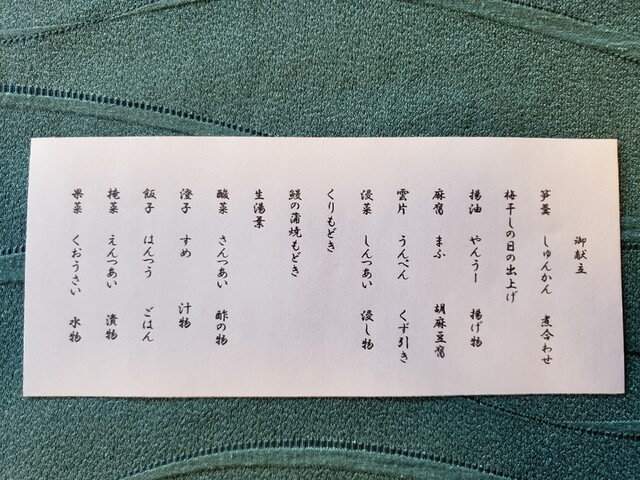 御献立
笋羹 しゅんかん 煮合わせ
梅干しの日の出上げ
揚油 やんうー 揚げ物
麻腐 まふ 胡麻豆腐
雲片 うんぺん くず引き
浸菜 しんつあい 浸し物
くりもどき
鰻の蒲焼もどき
生湯葉
酸菜 さんつあい 酢の物
澄子 すめ 汁物
飯子 はんつう ごはん
掩菜 えんつあい 漬物
果菜 くおうさい 水物